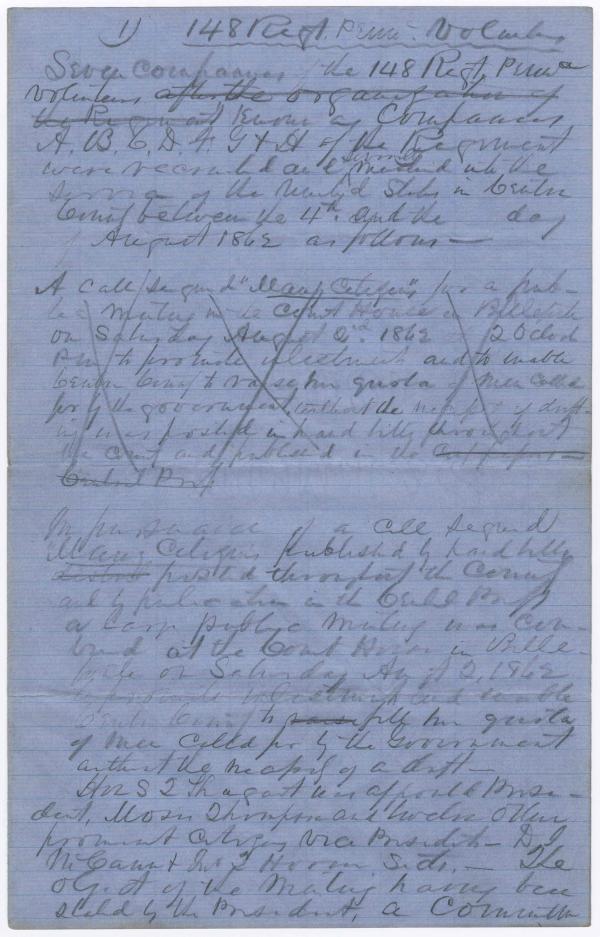 1) 148 Regt. Penn. Volunteers
Seven Companies of the 148 Regt, Penna
Volunteers after the organization of
the Regiment Known as Companies
A. B. C. D. F. G & H of the Regiment
were recruited and sworn mustered into the
service of the United States in Centre
County between the 4th and the day
of August 1862 as follows —
A call signed "Many Citizens" for a pub-
lic Meeting in the Court House in Bellefonte
on Saturday August 2nd 1862 at 2 Oclock
P.m. to promote enlistments and to enable
Centre County to raise her quota of Men Called
for by the government, without the necessity of draft-
ing was posted in hand bills throughout
the County and published in the
Central Press
In pursuance of a call signed
Many Citizens published by hand bills
posted throughout the County
and by publication in the Central Press
a large public Meeting was con-
vened at the Court House in Belle-
fonte on Saturday August 2, 1862
to promote enlistments and enable
Centre County to raise fill her quota
of Men Called for by the Government
without the necessity of a draft —
Hon S T Shugart was appointed Presi-
dent, Moses Thompson and twelve other
prominent Citizens Vice Presidents — D. S.
McCann & Jno Hoover Sects. — The
Object of the Meeting having been
stated by the President, a Committee